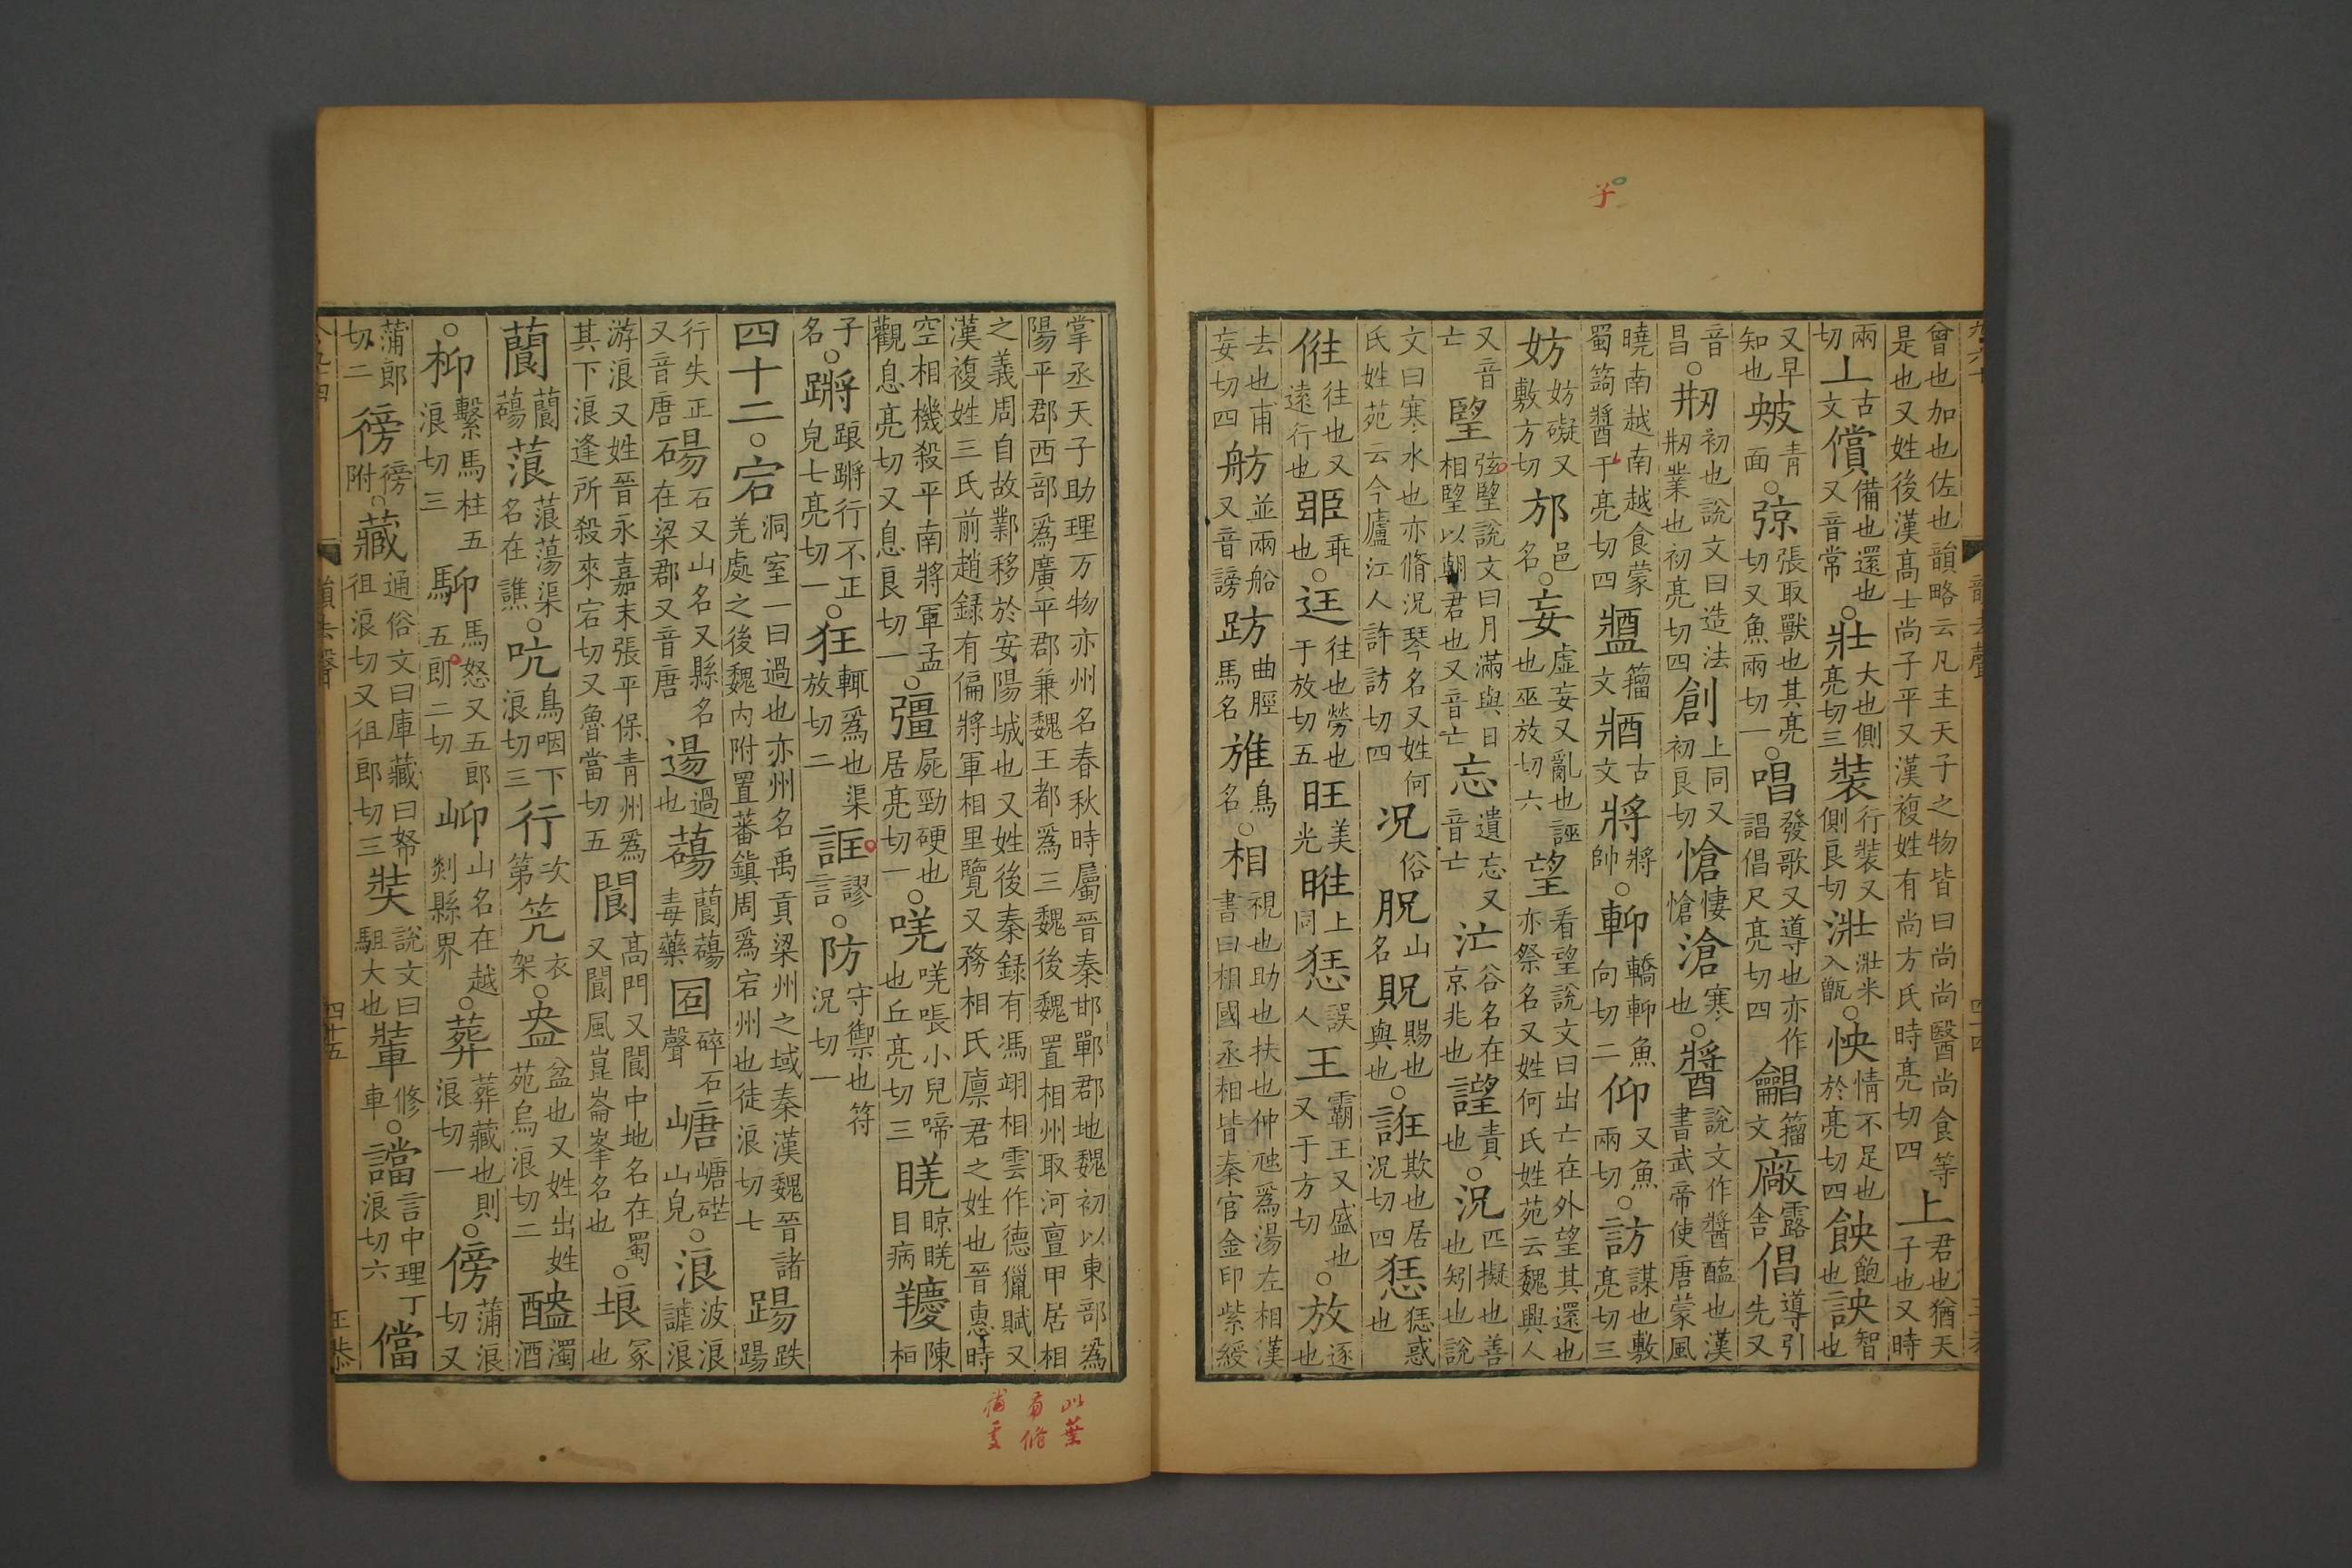 曾也加也佐也韻略云凡主天子之物皆曰尚尚醫尚食等是也又姓後漢髙士尚子平又漢複姓有尚方氏時亮切四上君也猶天子也又時
兩切丄古文償備也還也又音常○壯大也側亮切三裝行裝又側良切漴米入甑○怏情不足也於亮切四䬬飽也詇智也
又早知也䀮青面○弶張取獸也其亮切又魚兩切一○唱發歌又導也亦作誯倡尺亮切四䶴籀文廠露舍倡導引先又
音昌○刱初也說文曰造法刱業也初亮切四創上同又初良切愴悽愴滄寒也○醬說文作醬醢也漢書武帝使唐蒙風
曉南越南越食蒙蜀蒟醬干亮切四籀文古文將將帥○軜轎軜魚向切二仰又魚兩切○訪謀也敷亮切三
妨妨礙又敷方切邡邑名○妄虛妄又亂也誣也巫放切六望看望說文曰出亡在外望其還也亦祭名又姓何氏姓苑云魏興人
又音亡朢弦朢說文曰月滿與日相朢以朝君也又音亡忘遺忘又音亡汒谷名在京兆也謹責也○況匹擬也善也矧也說
文曰寒水也亦脩況琴名又姓何氏姓苑云今廬江人許訪切四况俗貺山名貺賜也與也○誑欺也居況切四惩惑也
徃往也又遠行也乖也○迋往也勞也于放切五旺美光暀上同誤人王霸王又盛也又于方切○放逐也
去也甫妄切四舫並兩船又音謗趽曲脛馬名鳥名○相視也助也扶也仲虺爲湯左相漢書曰相國丞相皆秦官金印紫綬
掌丞天子助理万物亦州名春秋時屬晉秦邯鄲郡地魏初以東部爲
陽平郡西部爲廣平郡兼魏王都爲三魏後魏置相州取河亶甲居相
之義周自故鄴移於安陽城也又姓後秦錄有馮翊相雲作德獵賦又
漢複姓三氏前趙録有偏將軍相里覽又務相氏廪君之姓也晉惠時
空相機殺平南將軍孟觀息亮切又息良切一○彊屍勁硬也居亮切一○唴唴哴小兒啼也丘亮切三䀶眼䀶目病羻陳桓
子名○蹡踉蹡行不正皃七亮切一○狂輒爲也渠放切二誆謬言○防守禦也符況切一
四十二○宕洞室一曰過也亦州名禹貢梁州之域秦漢魏晉諸羌處之後魏内附置蕃鎮周爲宕州也徒浪切七踼跌踼
行失正又音唐碭石又山名又縣名在梁郡又音唐逿過也蘯蘭蘯毒藥㘸碎石聲㟐㟐㟅山皃○浪波浪謔浪
游浪又姓晉永嘉末張平保青州爲其下浪逢所殺來宕切又魯當切五閬髙門又閬中地名在蜀又閬風崑崙峯名也○埌冢也
蘭蘭蘯蒗蒗蕩渠名在譙○吭鳥咽下浪切三行次第笐衣架○盎盆也又姓出姓苑烏浪切二醠濁酒
○枊繫馬柱五浪切三䭹馬怒又五郎五郎二切山名在越剡縣界○葬葬藏也則浪切一○傍蒲浪切又
蒲郎切二徬徬附○藏通俗文曰庫藏曰帑徂浪切又徂郎切三奘說文曰駔大也修車○譡言中理丁浪切六儅
韻去聲
四十五
王恭
子
此葉
有脩